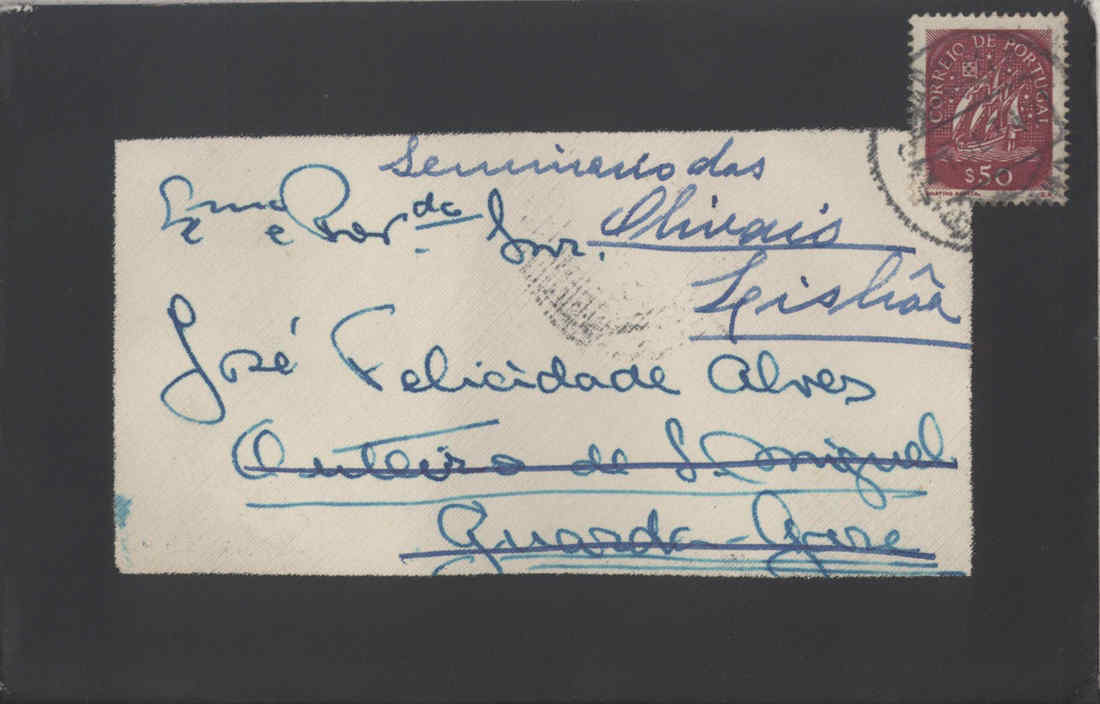 CORREIO DE PORTUGAL
$50
Seminario das
Exmo e Rev.do Snr.
Olivais
Lisbôa
José Felicidade Alves
Outeiro de S. Miguel
Guarda-Gare